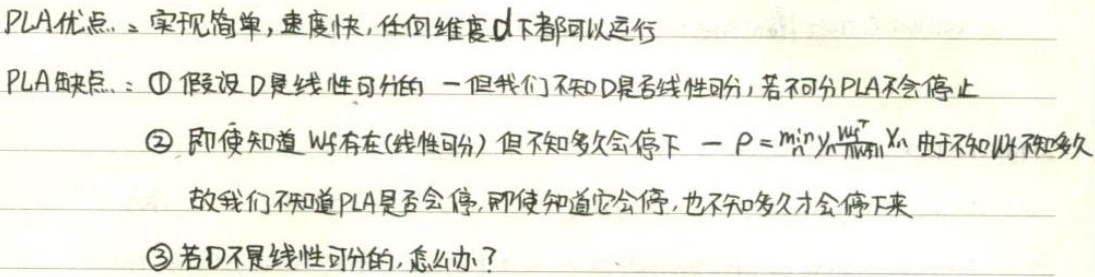 PLA优点: 实现简单,速度快,任何维度d下都可以运行
PLA缺点: ① 假设D是线性可分的 — 但我们不知D是否线性可分,若不可分PLA不会停止
② 即使知道Wf存在(线性可分) 但不知多久会停下 — ρ = min_n y_n Wf^T/||Wf|| x_n 由于不知Wf不知多久
故我们不知道PLA是否会停,即使知道它会停,也不知多久才会停下来
③ 若D不是线性可分的,怎么办?